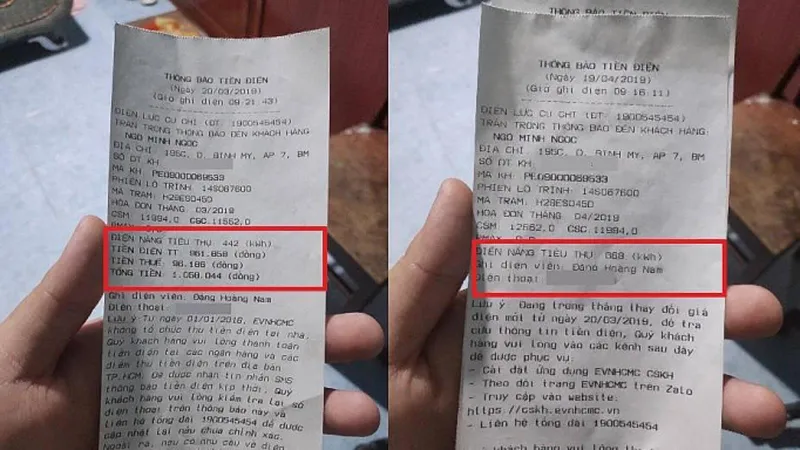 THÔNG BÁO TIỀN ĐIỆN
(Ngày 20/03/2019)
(Giờ ghi điện 09:21:43)
ĐIỆN LỰC CỦ CHI (ĐT: 1900545454)
TRÂN TRỌNG THÔNG BÁO ĐẾN KHÁCH HÀNG
NGÔ MINH NGỌC
ĐỊA CHỈ: 195C, D. BÌNH MỸ, ẤP 7, BM
SỐ ĐT KH:
MÃ KH: PE09000069533
PHIÊN LỘ TRÌNH: 14S067600
MÃ TRẠM: H29ES045D
HÓA ĐƠN THÁNG: 03/2019
CSM: 11994,0 CSC:11552,0
PMAX: 0.0
ĐIỆN NĂNG TIÊU THỤ: 442 (kWh)
TIỀN ĐIỆN TT: 961.858 (đồng)
TIỀN THUẾ: 96.186 (đồng)
TỔNG TIỀN: 1.058.044 (đồng)
Ghi điện viên: Đặng Hoàng Nam
Điện thoại:
Lưu ý: Từ ngày 01/01/2018, EVNHCMC
không tổ chức thu tiền điện tại nhà.
Quý khách hàng vui lòng thanh toán
tiền điện tại các ngân hàng và các
điểm thu tiền điện trên địa bàn
TP.HCM. Để được nhận tin nhắn SMS
thông báo tiền điện kịp thời, Quý
khách hàng vui lòng kiểm tra lại số
điện thoại trên thông báo này và
liên hệ tổng đài 1900545454 để được
cập nhật lại nếu chưa chính xác.
Ngoài ra, nếu có nhu cầu về điện
THÔNG BÁO TIỀN ĐIỆN
(Ngày 19/04/2019)
(Giờ ghi điện 09:16:11)
ĐIỆN LỰC CỦ CHI (ĐT: 1900545454)
TRÂN TRỌNG THÔNG BÁO ĐẾN KHÁCH HÀNG:
NGÔ MINH NGỌC
ĐỊA CHỈ: 195C, D. BÌNH MỸ, ẤP 7, BM
SỐ ĐT KH:
MÃ KH: PE09000069533
PHIÊN LỘ TRÌNH: 14S067600
MÃ TRẠM: H29ES045D
HÓA ĐƠN THÁNG: 04/2019
CSM: 12662,0 CSC:11994,0
ĐIỆN NĂNG TIÊU THỤ: 668 (kWh)
Ghi điện viên: Đặng Hoàng Nam
Điện thoại:
Lưu ý: Đang trong tháng thay đổi giá
điện mới từ ngày 20/03/2019, để tra
cứu thông tin tiền điện, Quý khách
hàng vui lòng vào các kênh sau đây
để được phục vụ:
- Cài đặt ứng dụng EVNHCMC CSKH
- Theo dõi trang EVNHCMC trên Zalo
- Truy cập vào website:
https://cskh.evnhcmc.vn
- Liên hệ tổng đài 1900545454